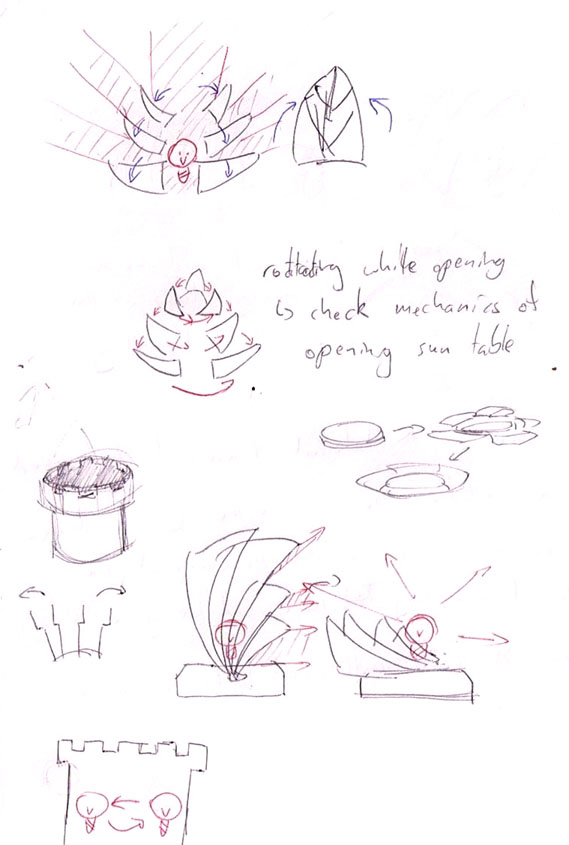 rotating while opening
↳ check mechanics of
opening sun table